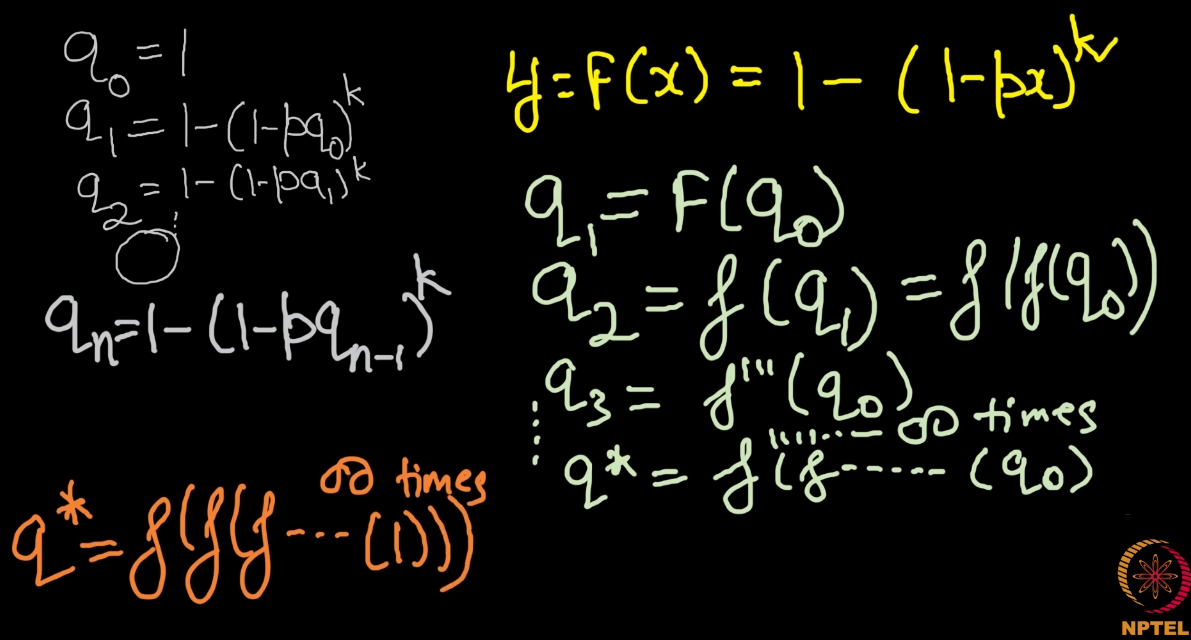 q₀ = 1
q₁ = 1-(1-pq₀)ᵏ
q₂ = 1-(1-pq₁)ᵏ
qₙ=1-(1-pqₙ₋₁)ᵏ
q* = f(f(f---(1))) ∞ times
y = F(x) = 1 - (1-px)ᵏ
q₁ = F(q₀)
q₂ = f(q₁) = f(f(q₀))
q₃ = f'''(q₀)
q* = f'''''...∞ times (f------(q₀)
NPTEL